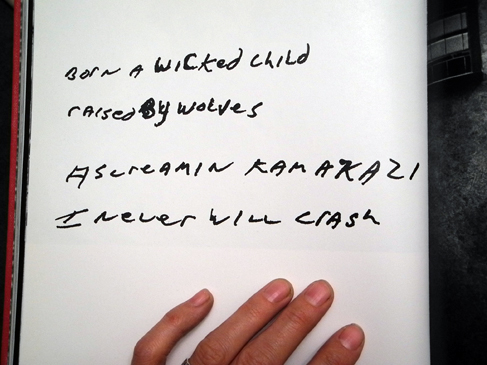 Born A WiCked child
rAised By wolves
A screAMIN KAMAKAZI
I Never WILL CrASh